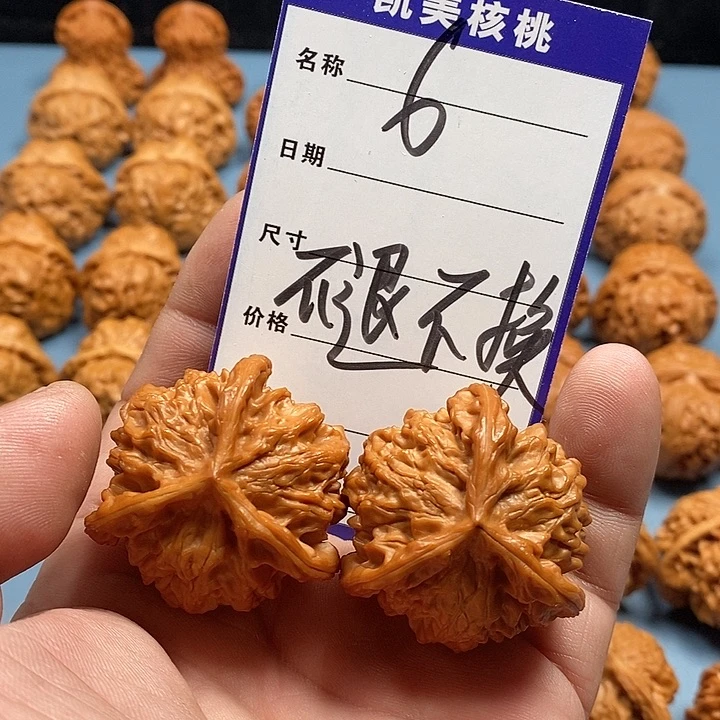 凯美核桃
名称 6
日期
尺寸
不退不换
价格